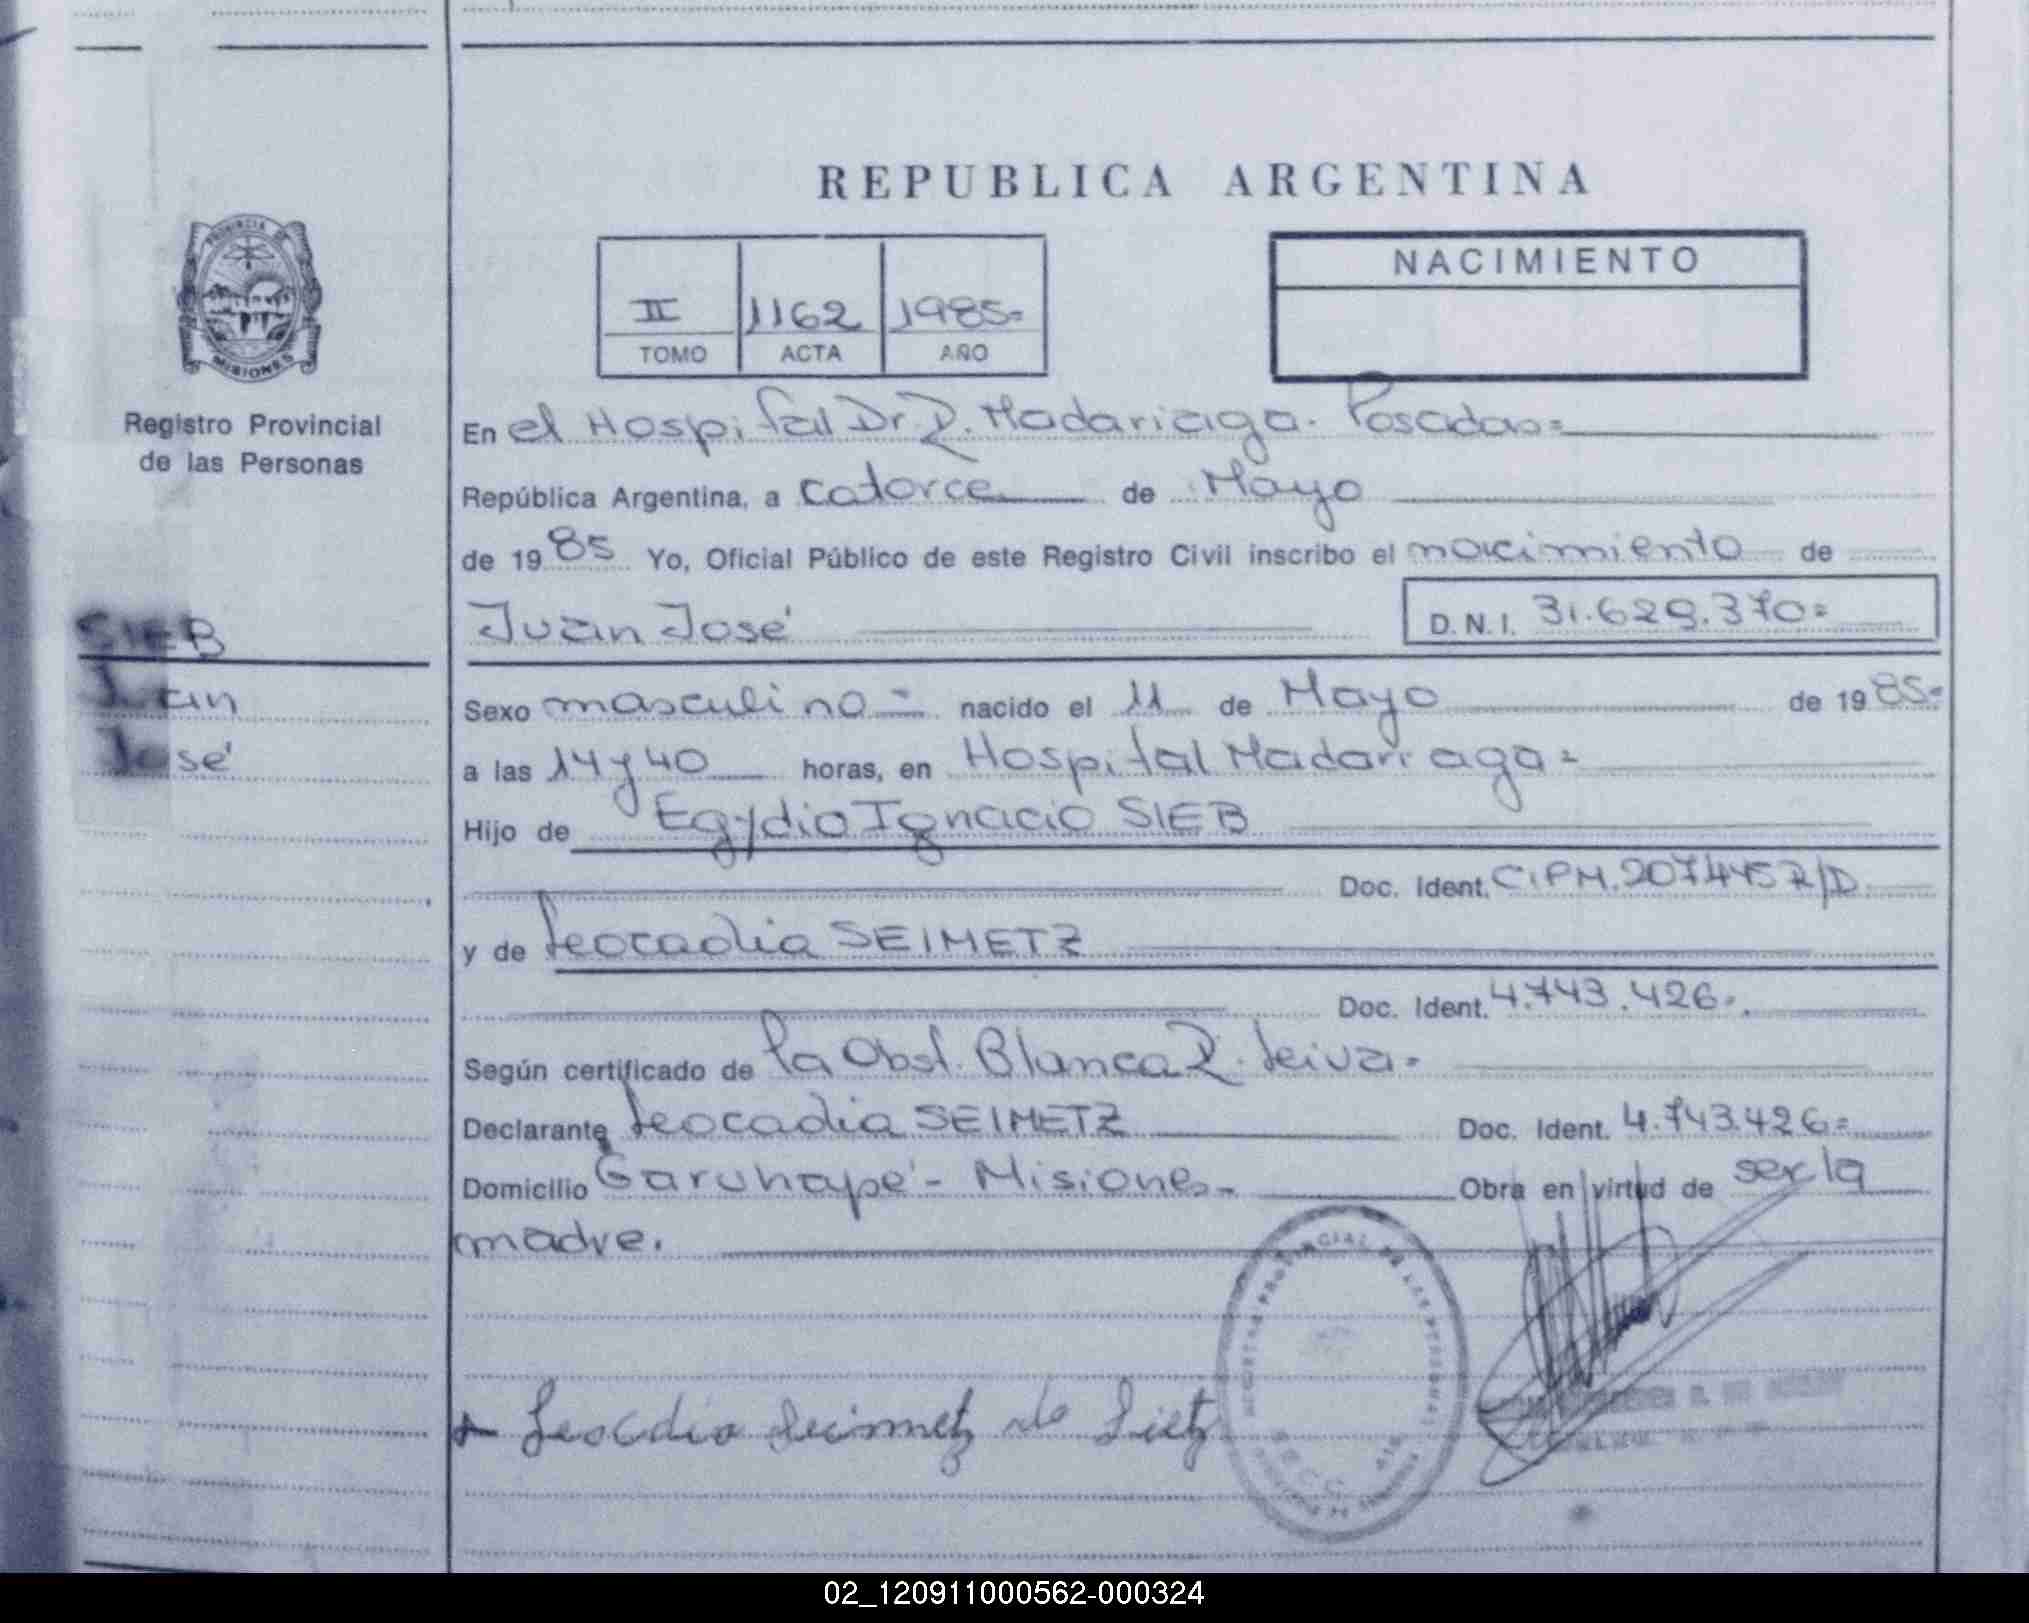 REPUBLICA ARGENTINA
PROVINCIA DE
MISIONES
II 1162 1985=
TOMO ACTA AÑO
NACIMIENTO
Registro Provincial
de las Personas
En el Hospital Dr. R. Madariaga. Posadas=
República Argentina, a catorce de Mayo
de 1985 Yo, Oficial Público de este Registro Civil inscribo el nacimiento de
SIEB
Juan
José
Juan José D.N.I. 31.629.370=
Sexo masculino= nacido el 11 de Mayo de 1985=
a las 14 y 40 horas, en Hospital Madariaga=
Hijo de Egydio Ignacio SIEB
Doc. Ident. C.I.P.M. 207445 R/D
y de Leocadia SEIMETZ
Doc. Ident. 4.743.426.
Según certificado de la Obst. Blanca R. Leiva=
Declarante Leocadia SEIMETZ Doc. Ident. 4.743.426=
Domicilio Garuhapé - Misiones- Obra en virtud de ser la
madre.
REGISTRO PROVINCIAL DE LAS PERSONAS
Leocdia Seimetz de
02_120911000562-000324